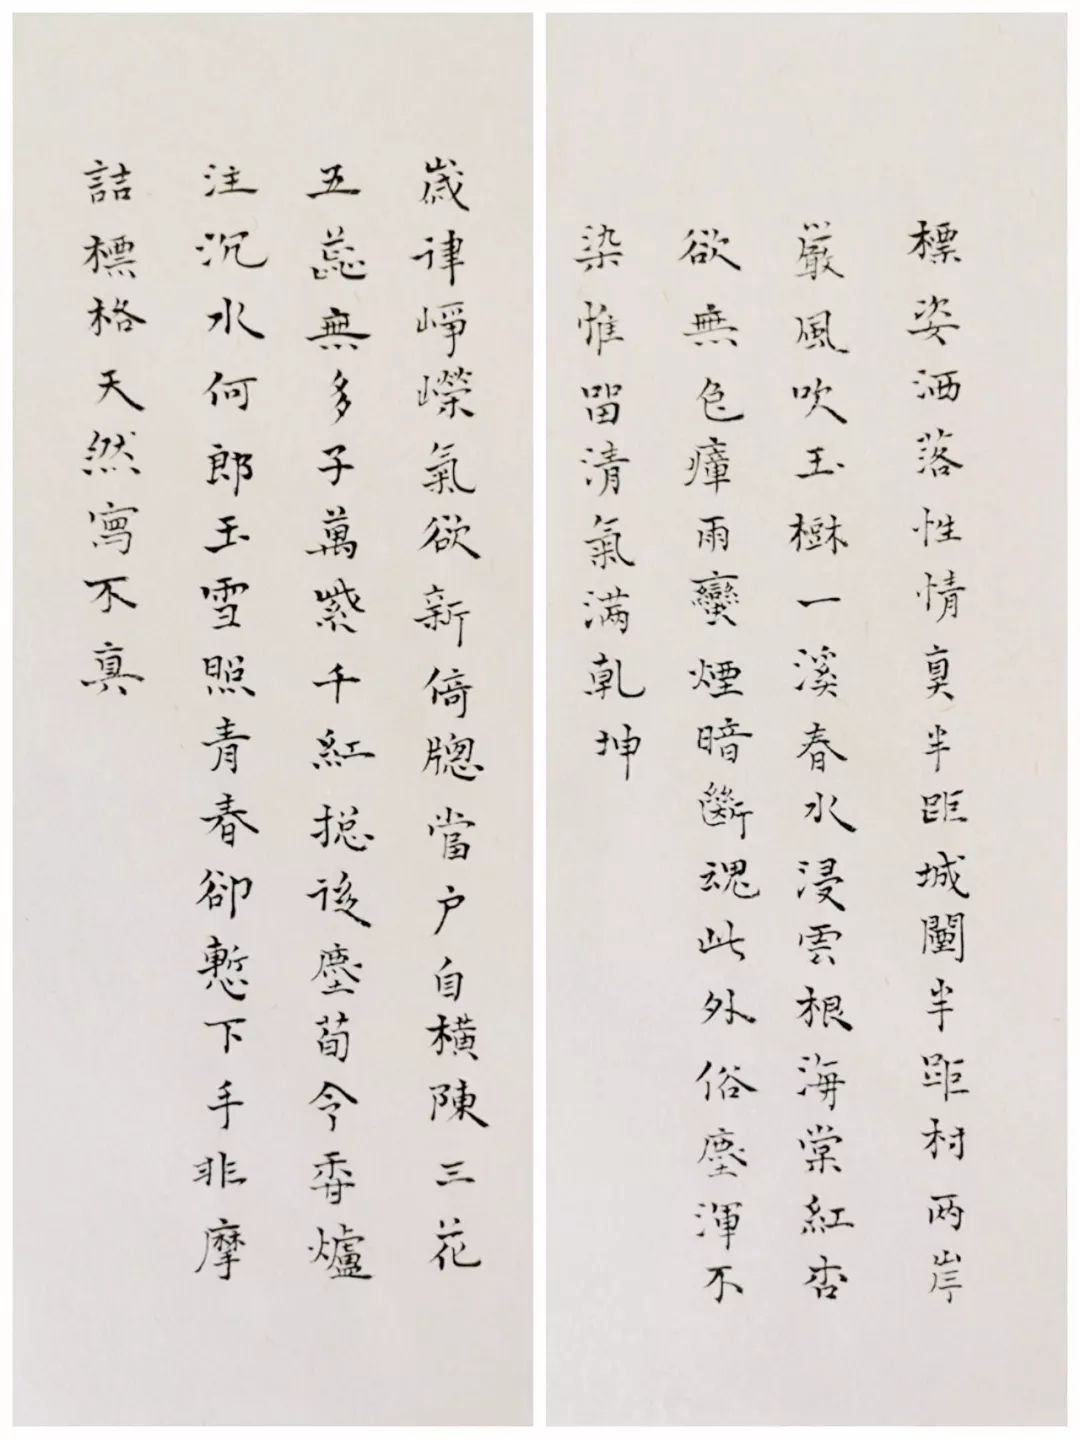 標姿洒落性情真半距城闉半距村两岸
嚴風吹玉樹一溪春水浸雲根海棠紅杏
欲無色瘴雨蠻煙暗斷魂此外俗塵渾不
染惟畱清氣满乾坤
歲律崢嶸氣欲新倚牕當户自橫陳三花
五蕊無多子萬紫千紅揔後塵荀令香爐
注沉水何郎玉雪照青春卻慙下手非摩
詰標格天然寫不真